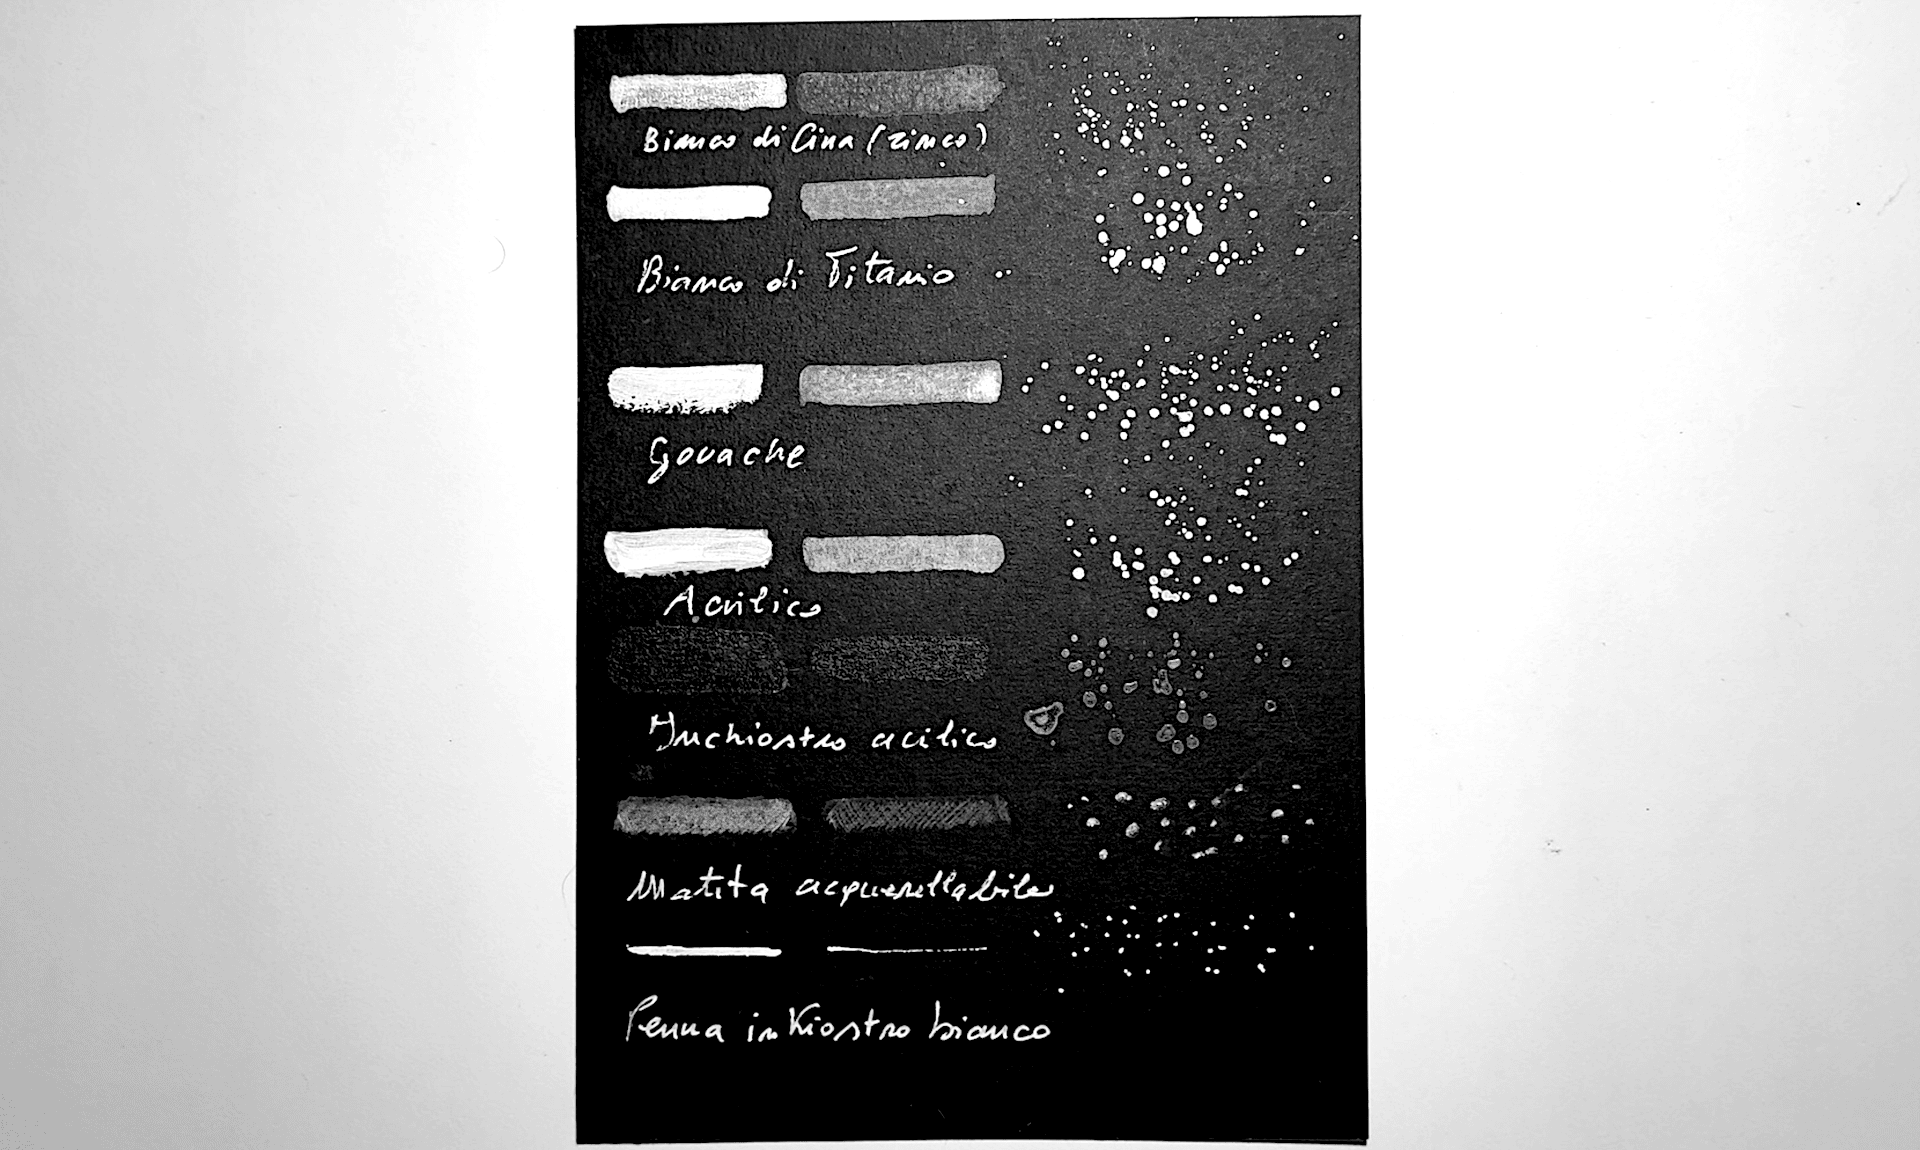 Bianco di Cina (zinco)
Bianco di Titanio
Gouache
Acrilico
Inchiostro acilico
Matita acquerellabile
Penna inKiostro bianco